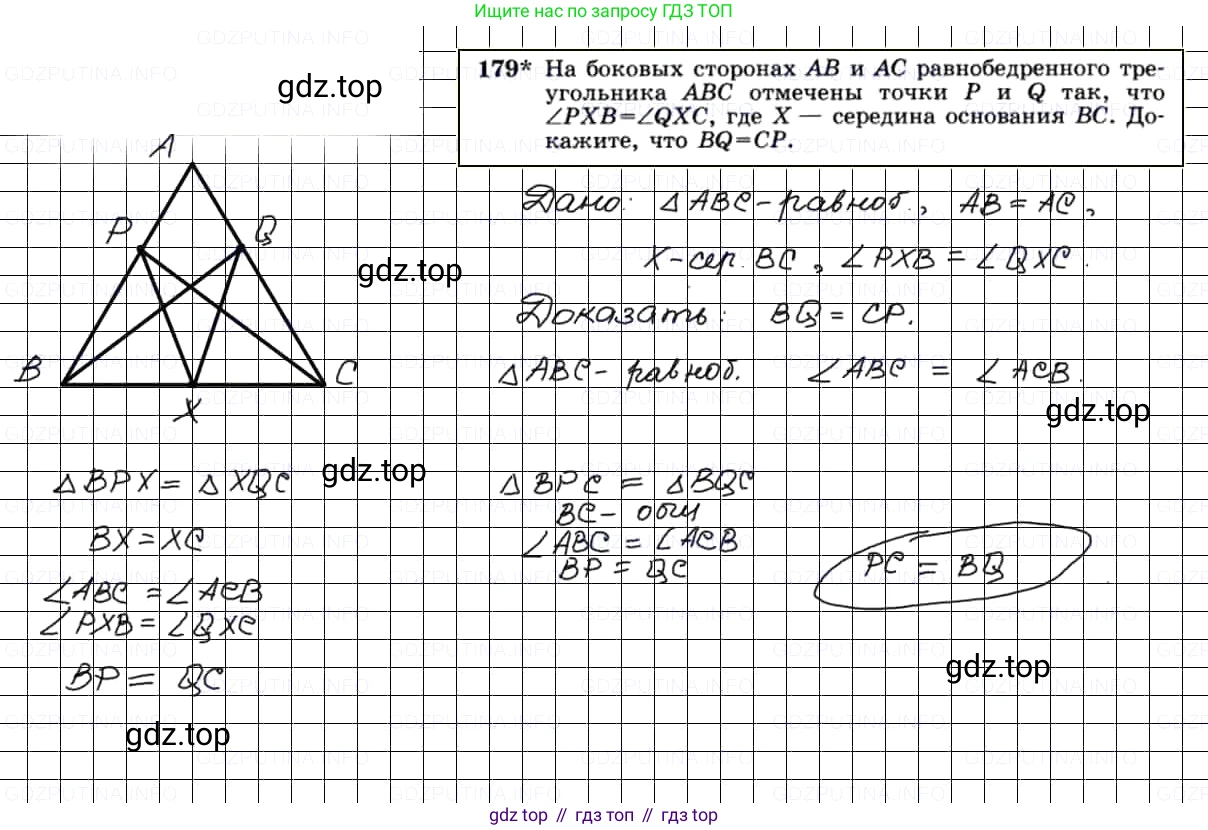 Ищите нас по запросу ГДЗ ТОП
179* На боковых сторонах AB и AC равнобедренного тре-
угольника ABC отмечены точки P и Q так, что
∠PXB=∠QXC, где X — середина основания BC. До-
кажите, что BQ=CP.
gdz.top
A
P
Q
B
C
X
gdz.top
Дано: △ABC-равноб., AB=AC,
X-сер. BC, ∠PXB=∠QXC.
Доказать: BQ=CP.
△ABC-равноб. ∠ABC = ∠ACB.
gdz.top
gdz.top
△BPX=△XQC
BX=XC
∠ABC=∠ACB
∠PXB=∠QXC
BP=QC
gdz.top
△BPC = △BQC
BC- общ
∠ABC=∠ACB
BP=QC
PC=BQ
gdz.top
GDZPUTINA.INFO
gdz top // гдз топ // gdz.top